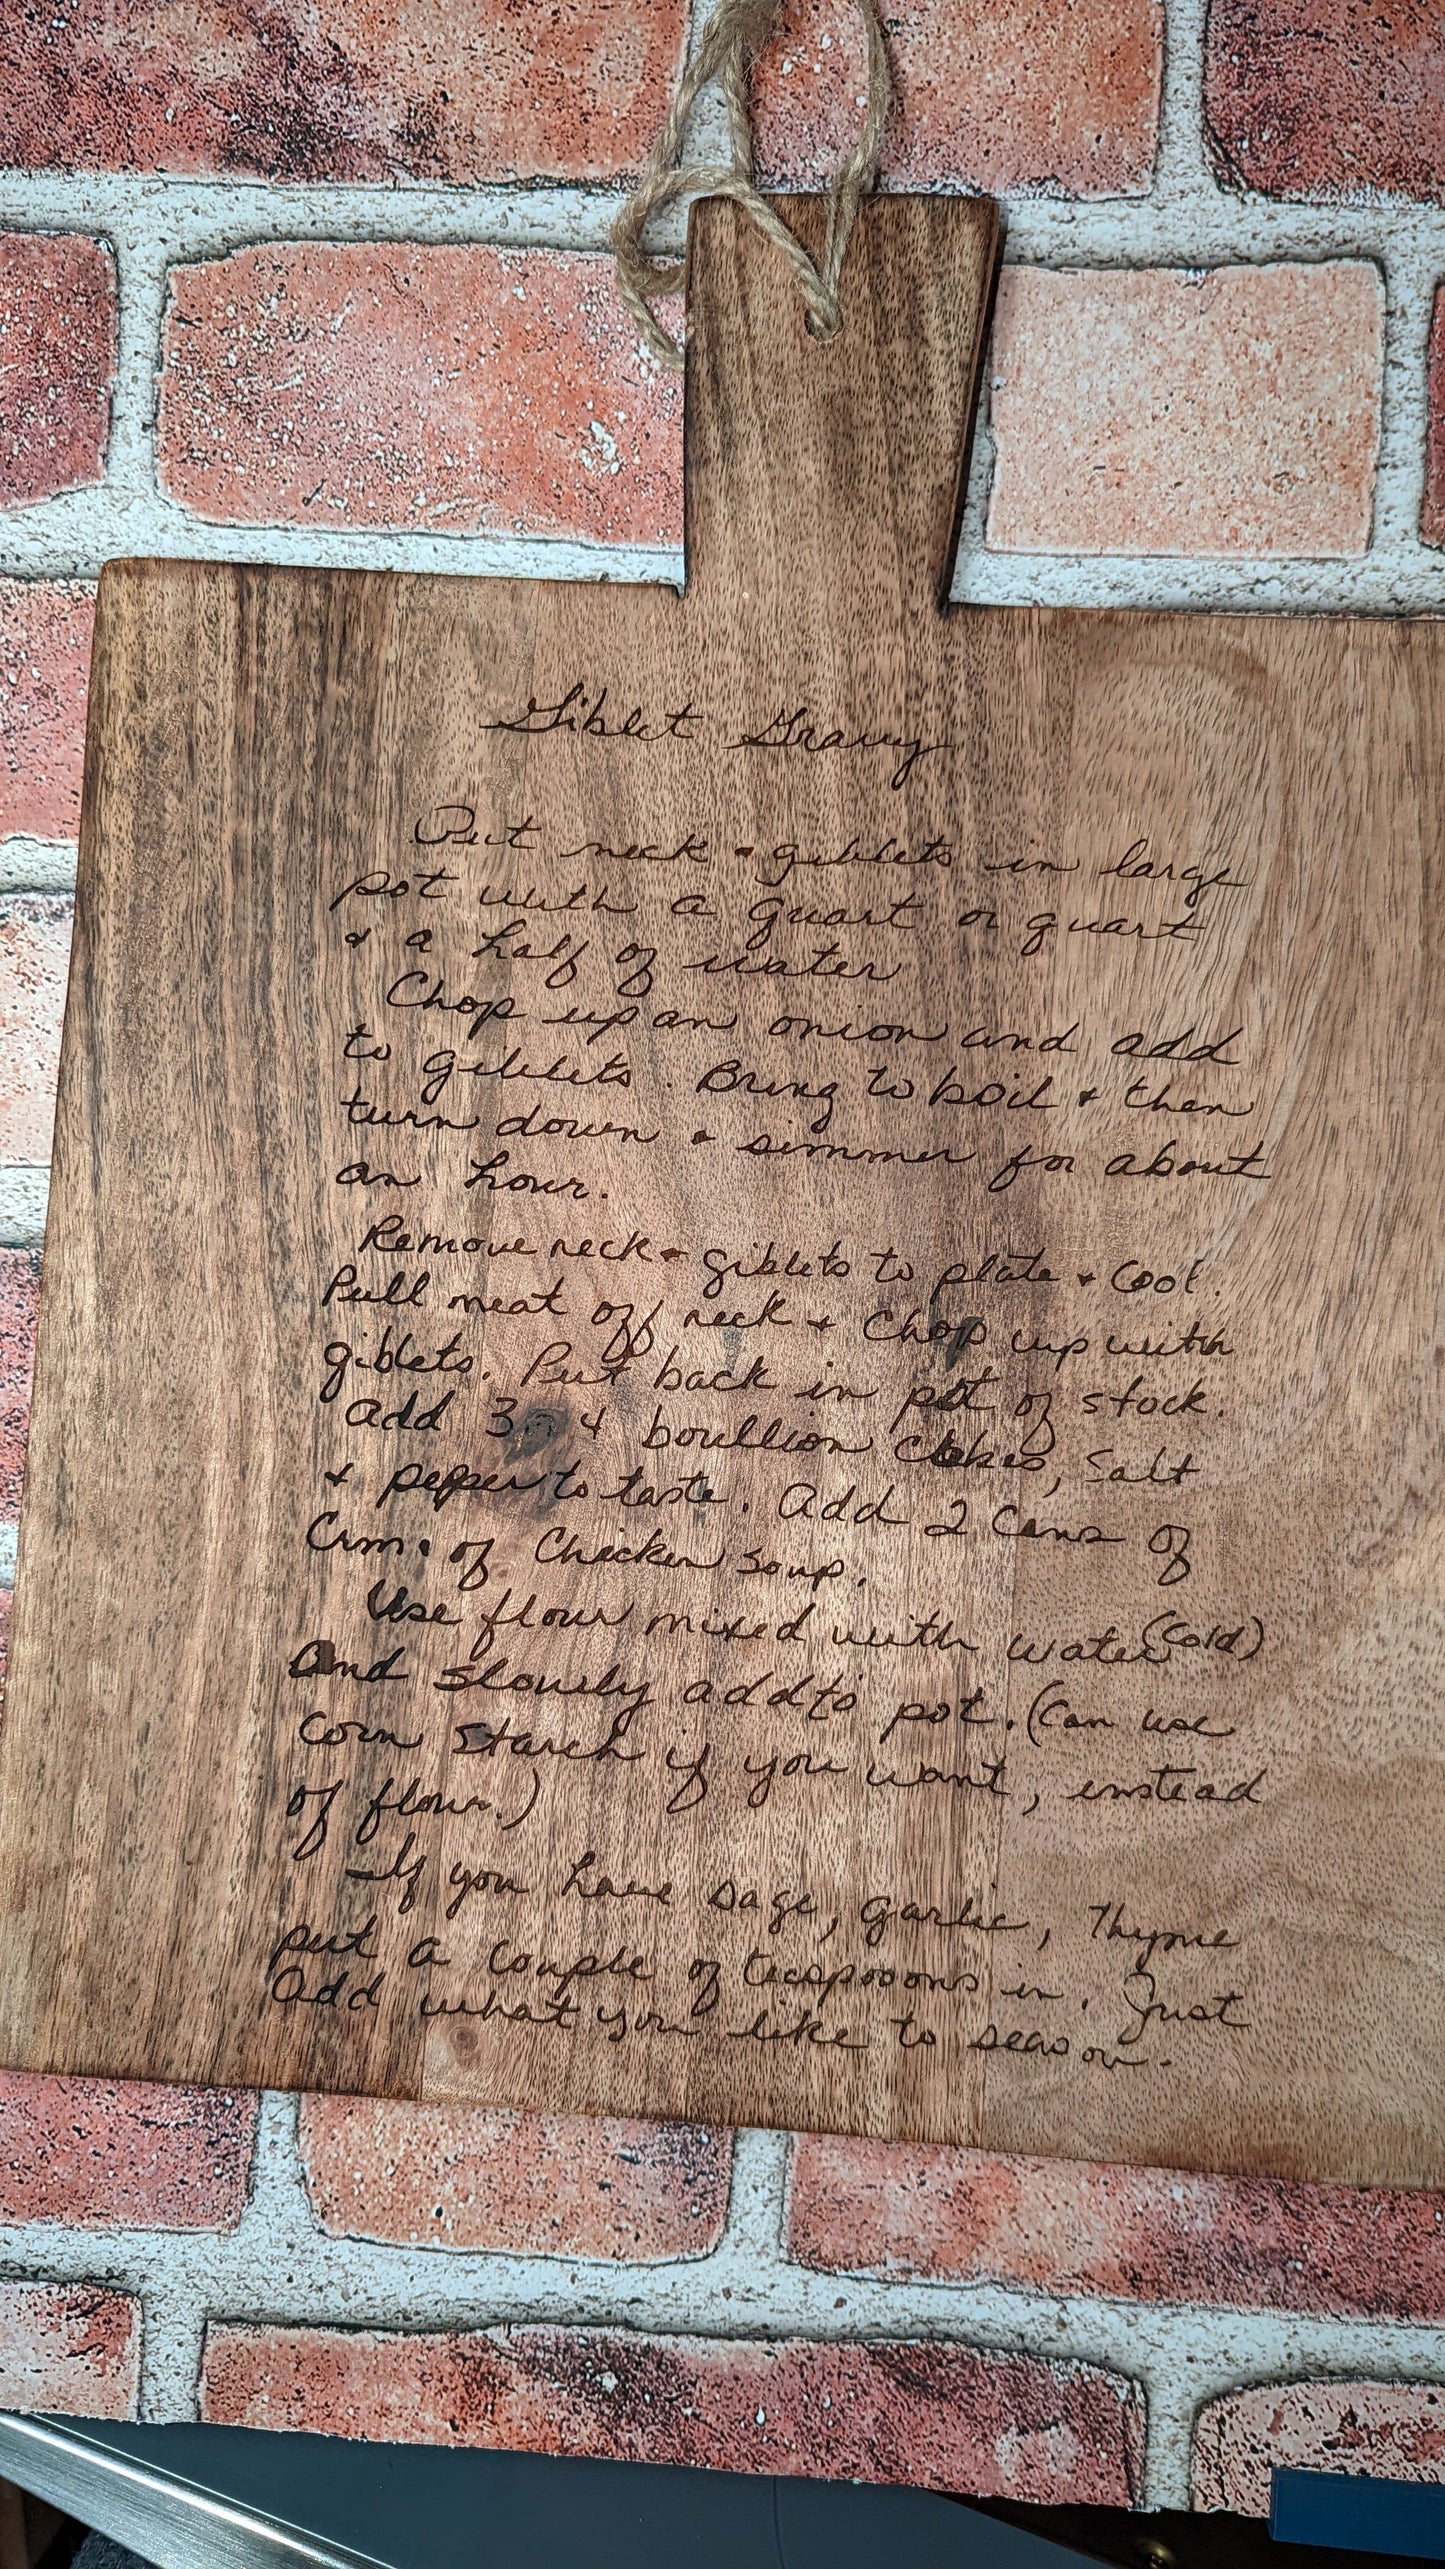 Giblet Gravy
Put neck & giblets in large
pot with a quart or quart
& a half of water
Chop up an onion and add
to giblets. Bring to boil & then
turn down & simmer for about
an hour.
Remove neck & giblets to plate & cool.
Pull meat off neck & chop up with
giblets. Put back in pot of stock.
Add 3 or 4 boullion cubes, salt
& pepper to taste. Add 2 cans of
Crm. of Chicken soup.
Use flour mixed with water (cold)
and slowly add to pot. (Can use
corn starch if you want, instead
of flour.)
If you have sage, garlic, thyme
put a couple of teaspoons in. Just
add what you like to season.